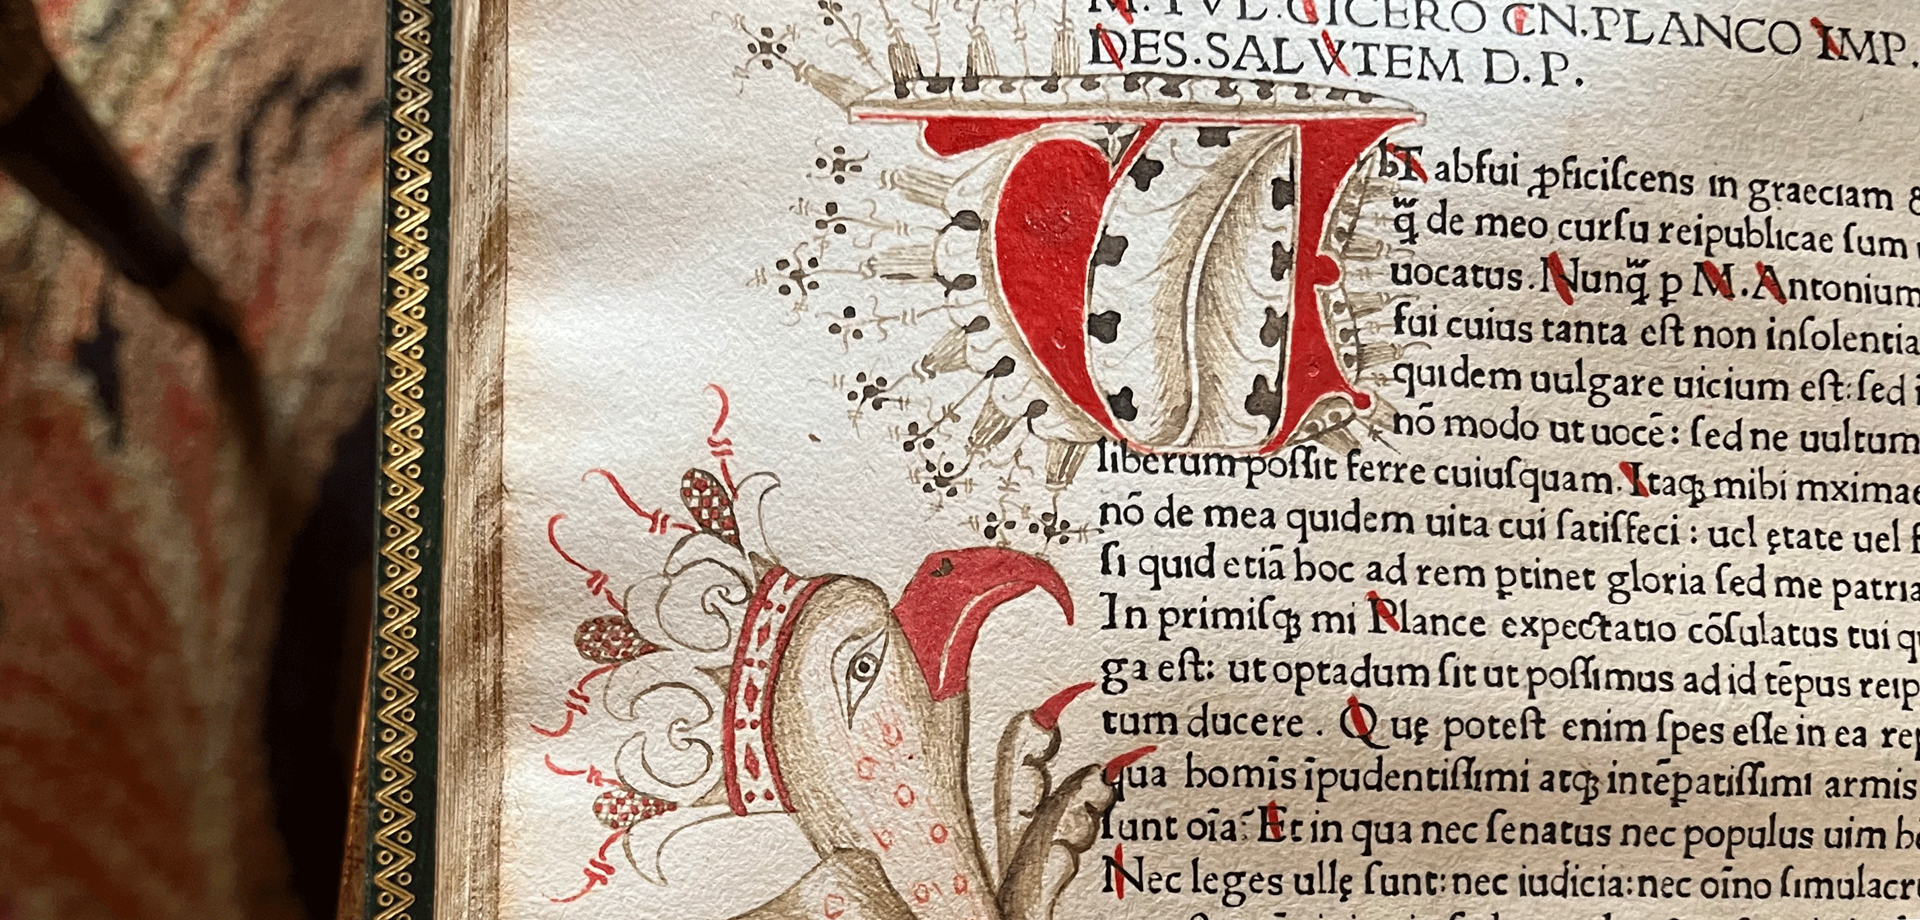 M. TVL. CICERO CN. PLANCO IMP.
DES. SALVTEM D. P.
VbI abfui ꝓficiſcens ın graecıam &
q̃ de meo curſu reipublıcae ſum
uocatus. Nunq̃ p M. Antonium
fui cuius tanta eſt non inſolentia
quıdem uulgare uicium eſt: ſed i
nõ modo ut uocē: ſed ne uultum
liberum poſſit ferre cuiuſquam. Itaqꝫ mihi mximae
nõ de mea quıdem uita cui ſatiſfeci: ucl ętate uel f
ſi quıd etiā hoc ad rem ꝑtinet gloria ſed me patrıa
In primiſqꝫ mi Plance expectatıo cōſulatus tui qu
ga eſt: ut optadum ſit ut poſſimus ad id tēpus reıp
tum ducere. Quę poteſt enim ſpes eſſe in ea rep
qua homīs īpudentiſſımi atqꝫ intēpatiſſımı armis
ſunt oīa: Et in qua nec ſenatus nec populus uim h
Nec leges ullę ſunt: nec iudicia: nec oīno ſımulacr